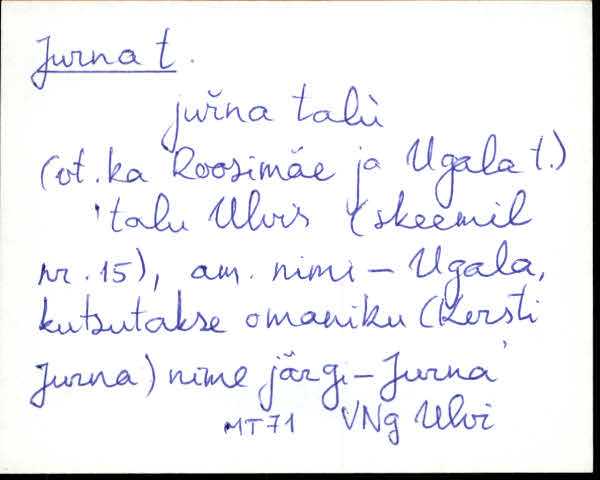 Jurna t.
jur̆na talù
(vt. ka Roosimäe ja Ugala t.)
'talu Ulvis (skeemil
nr. 15), am. nimi – Ugala,
kutsutakse omaniku (Kersti
Jurna) nime järgi – Jurna'
MT71 VNg Ulvi